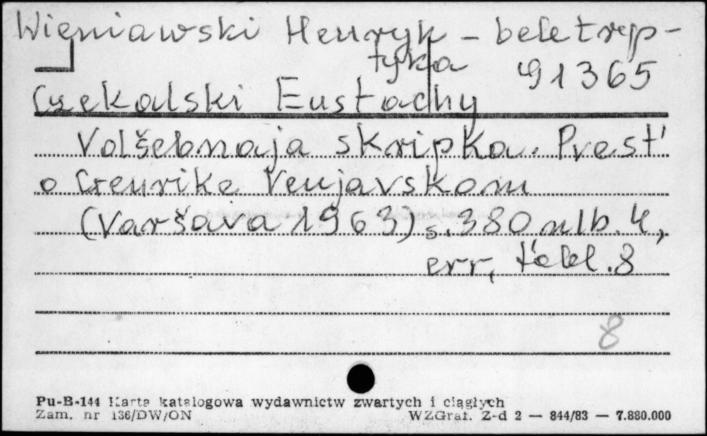 Wieniawski Henryk - beletrys-
tyka
91365
Czekalski Eustachy
Volšebnaja skripka. Povest'
o Genrike Venjavskom
(Varšava 1963) s. 380 nlb. 4,
err, tabl. 8
8
Pu-B-144 Karta katalogowa wydawnictw zwartych i ciągłych
Zam. nr 136/DW/ON WZGraf. Z-d 2 — 844/83 — 7.880.000